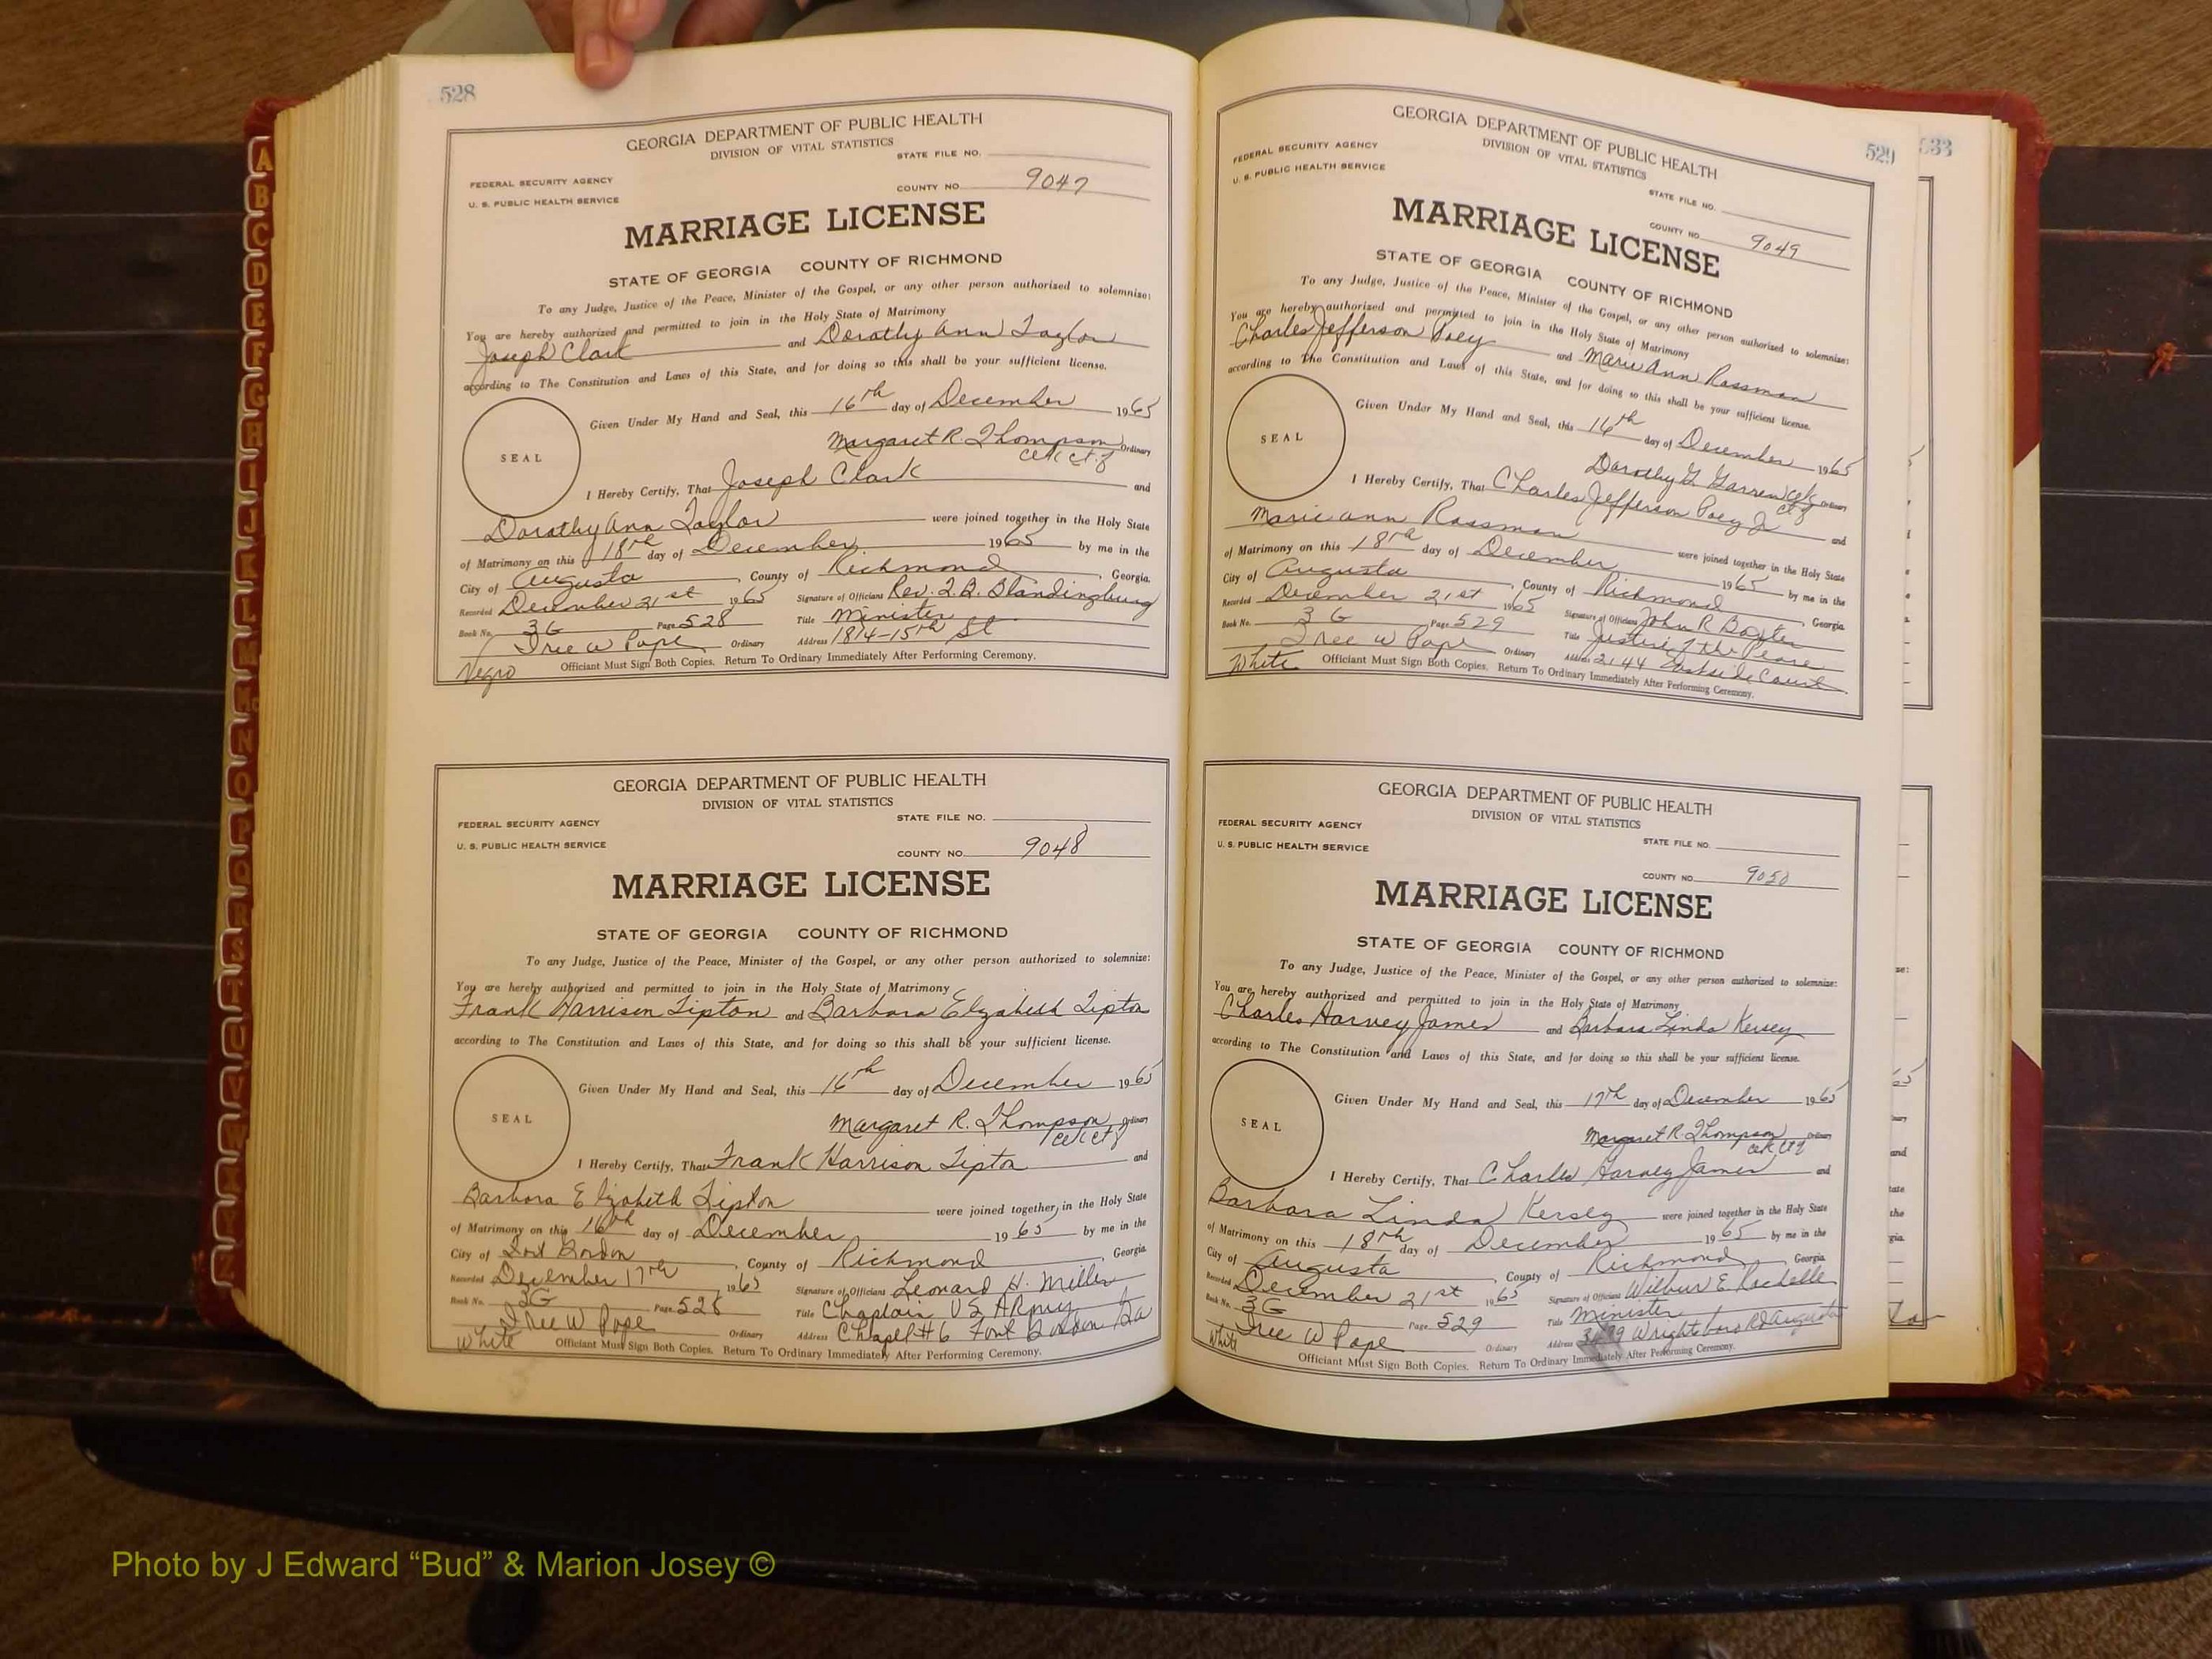 528
GEORGIA DEPARTMENT OF PUBLIC HEALTH
DIVISION OF VITAL STATISTICS
STATE FILE NO.
FEDERAL SECURITY AGENCY
U. S. PUBLIC HEALTH SERVICE
COUNTY NO. 9047
MARRIAGE LICENSE
STATE OF GEORGIA COUNTY OF RICHMOND
To any Judge, Justice of the Peace, Minister of the Gospel, or any other person authorized to solemnize:
You are hereby authorized and permitted to join in the Holy State of Matrimony
Joseph Clark and Dorothy Ann Taylor
according to The Constitution and Laws of this State, and for doing so this shall be your sufficient license.
Given Under My Hand and Seal, this 16th day of December 1965
SEAL
Margaret R. Thompson Ordinary
I Hereby Certify, That Joseph Clark and
Dorothy Ann Taylor were joined together in the Holy State
of Matrimony on this 18th day of December 1965 by me in the
City of Augusta, County of Richmond, Georgia.
Recorded December 21st 1965 Signature of Officiant Rev.
Book No. 3G Page 528 Title Minister
W Pope Ordinary Address 1814-15th St
Negro Officiant Must Sign Both Copies. Return To Ordinary Immediately After Performing Ceremony.
GEORGIA DEPARTMENT OF PUBLIC HEALTH
DIVISION OF VITAL STATISTICS
STATE FILE NO.
FEDERAL SECURITY AGENCY
U. S. PUBLIC HEALTH SERVICE
COUNTY NO. 9048
MARRIAGE LICENSE
STATE OF GEORGIA COUNTY OF RICHMOND
To any Judge, Justice of the Peace, Minister of the Gospel, or any other person authorized to solemnize:
You are hereby authorized and permitted to join in the Holy State of Matrimony
Frank Harrison Tipton and Barbara Elizabeth Tipton
according to The Constitution and Laws of this State, and for doing so this shall be your sufficient license.
Given Under My Hand and Seal, this 16th day of December 1965
SEAL
Margaret R. Thompson Ordinary
I Hereby Certify, That Frank Harrison Tipton and
Barbara Elizabeth Tipton were joined together in the Holy State
of Matrimony on this 16th day of December 1965 by me in the
City of Fort Gordon, County of Richmond, Georgia.
Recorded December 17th 1965 Signature of Officiant Leonard H. Miller
Book No. 3G Page 528 Title Chaplain US Army
W Pope Ordinary Address Chapel #6 Fort Gordon Ga
White Officiant Must Sign Both Copies. Return To Ordinary Immediately After Performing Ceremony.
529
GEORGIA DEPARTMENT OF PUBLIC HEALTH
DIVISION OF VITAL STATISTICS
FEDERAL SECURITY AGENCY
U. S. PUBLIC HEALTH SERVICE
STATE FILE NO.
COUNTY NO. 9049
MARRIAGE LICENSE
STATE OF GEORGIA COUNTY OF RICHMOND
To any Judge, Justice of the Peace, Minister of the Gospel, or any other person authorized to solemnize:
You are hereby authorized and permitted to join in the Holy State of Matrimony
Charles Jefferson Poey and Marie Ann Rossman
according to The Constitution and Laws of this State, and for doing so this shall be your sufficient license.
Given Under My Hand and Seal, this 16th day of December 1965
SEAL
Dorothy G. Garren Ordinary
I Hereby Certify, That Charles Jefferson Poey Jr and
Marie Ann Rossman were joined together in the Holy State
of Matrimony on this 18th day of December 1965 by me in the
City of Augusta, County of Richmond, Georgia.
Recorded December 21st 1965 Signature of Officiant John R Baxter
Book No. 3G Page 529 Title Justice of the Peace
W Pope Ordinary Address 2144 Eastside Court
White Officiant Must Sign Both Copies. Return To Ordinary Immediately After Performing Ceremony.
GEORGIA DEPARTMENT OF PUBLIC HEALTH
DIVISION OF VITAL STATISTICS
FEDERAL SECURITY AGENCY
U. S. PUBLIC HEALTH SERVICE
STATE FILE NO.
COUNTY NO. 9050
MARRIAGE LICENSE
STATE OF GEORGIA COUNTY OF RICHMOND
To any Judge, Justice of the Peace, Minister of the Gospel, or any other person authorized to solemnize:
You are hereby authorized and permitted to join in the Holy State of Matrimony
Charles Harvey James and Barbara Linda Kersey
according to The Constitution and Laws of this State, and for doing so this shall be your sufficient license.
Given Under My Hand and Seal, this 17th day of December 1965
SEAL
Margaret R. Thompson Ordinary
I Hereby Certify, That Charles Harvey James and
Barbara Linda Kersey were joined together in the Holy State
of Matrimony on this 18th day of December 1965 by me in the
City of Augusta, County of Richmond, Georgia.
Recorded December 21st 1965 Signature of Officiant Wilbur E. Rochelle
Book No. 3G Page 529 Title Minister
W Pope Ordinary Address Wrightsboro Rd Augusta
White Officiant Must Sign Both Copies. Return To Ordinary Immediately After Performing Ceremony.
A
B
C
D
E
F
G
H
I
J
K
L
M
Mc
N
O
P
Q
R
S
T
U
V
W
X
Y
Z
Photo by J Edward “Bud” & Marion Josey ©